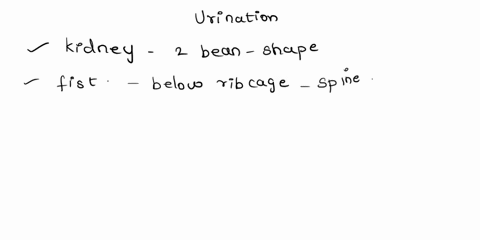 Urination
✓ kidney - 2 bean - shape
✓ fist - below ribcage - spine